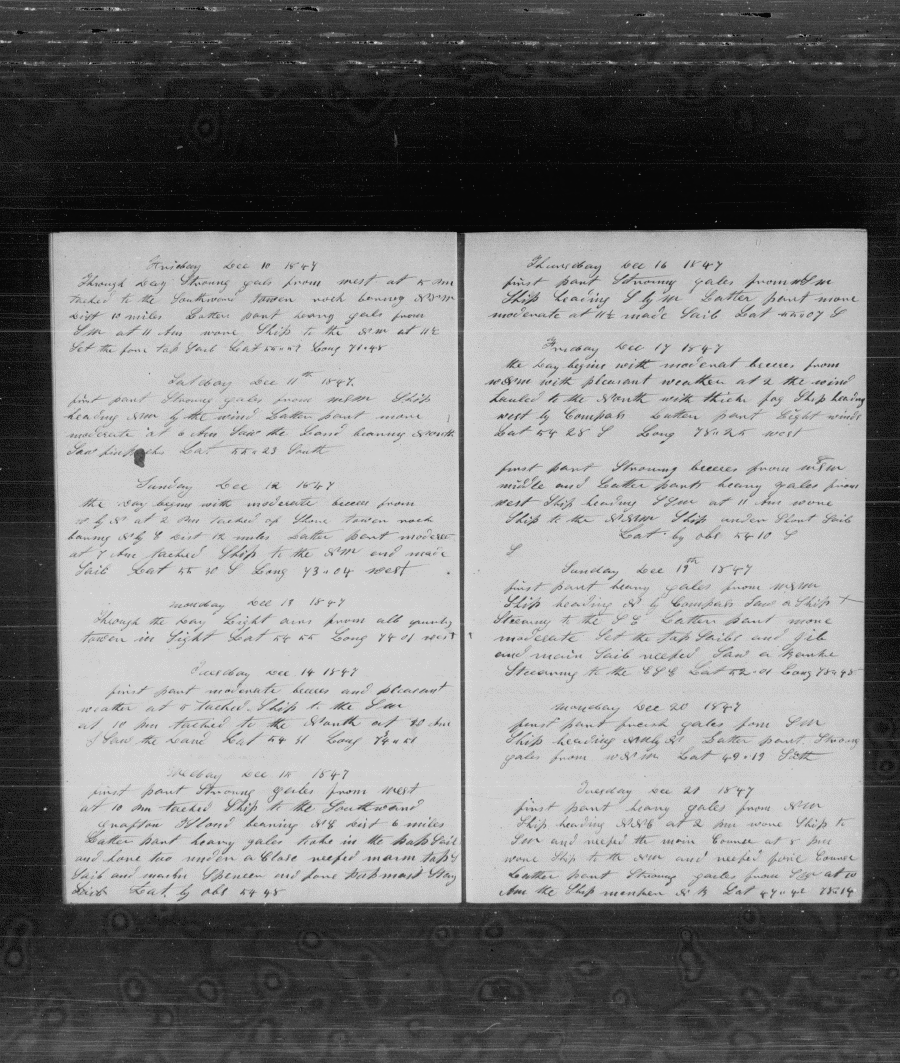 Friday Dec 10 1847
Through Day Stroung gales from west at 5 Am
tacked to the Southward towen rock bearing NNW
Dist 10 miles Latter part heavy gales from
SW at 11 Am wore Ship to the NW at 11½
Set the fore tap Sail Lat 55.57 Long 71.48
Satday Dec 11th 1847
first part Stroung gales from WSW Ship
heading NW by the wind Latter part more
moderate at 6 Am Saw the Land bearing North
Saw Lat 55.23 South
Sunday Dec 12 1847
the Day begins with moderate beeces from
W by N at 2 Pm tacked of Shore towen rock
baring N by E Dist 12 miles Latter part moderte
at 7 Am tacked Ship to the NW and made
Sail Lat 55 30 S Long 73.04 west
monday Dec 13 1847
Through the Day Light airs from all
towen in Sight Lat 54 55 Long 74 01 west
Tuesday Dec 14 1847
first part moderate beeces and pleasant
weather at 5 tacked Ship to the SW
at 10 pm tacked to the North at 10 Am
Saw the Land Lat 54 31 Long 74.51
Dec 15 1847
first part Stroung gales from west
at 10 Am tacked Ship to the Southward
Grafton Iland bearing NE Dist 6 miles
Latter part heavy gales toke in the Sail
and Lone too under a Close reefed marm tap
Sail and Spencer and fore tap mast Stay
Lat. by Obs 54 48
Thursday Dec 16 1847
first part Stroung gales from WSW
Ship heading S by W Latter part more
moderate at 11½ made Sail Lat 55.07 S
Friday Dec 17 1847
the Day begins with moderat beeces from
WNW with pleasant weather at 2 the wind
hauled to the North with thick fog Ship heading
west by Compass Latter part Light winds
Lat 54 28 S Long 78.25 west
first part Stroung beeces from WSW
middle and Latter parts heavy gales from
west Ship heading SSW at 11 Am wore
Ship to the NNW Ship under Short Sails
Lat. by obs 54 10 S
S
Sunday Dec 19th 1847
first part heavy gales from WSW
Ship heading N by Compass Saw a Ship
Stearing to the SE Latter part more
moderate Set the tap Sails and jib
and main Sail reefed Saw a Barke
Stearing to the ESE Lat 52.01 Long 78.45
monday Dec 20 1847
first part fresh gales from SW
Ship heading NW by N Latter part Stroung
gales from WNW Lat 49.19 South
Tuesday Dec 21 1847
first part heavy gales from NW
Ship heading NNE at 2 pm wore Ship to
SW and reefed the main Courser at 8 pm
wore Ship to the NW and reefed fore Courser
Latter part Stroung gales from SW at 10
Am the Ship Lat 47.42 78.14